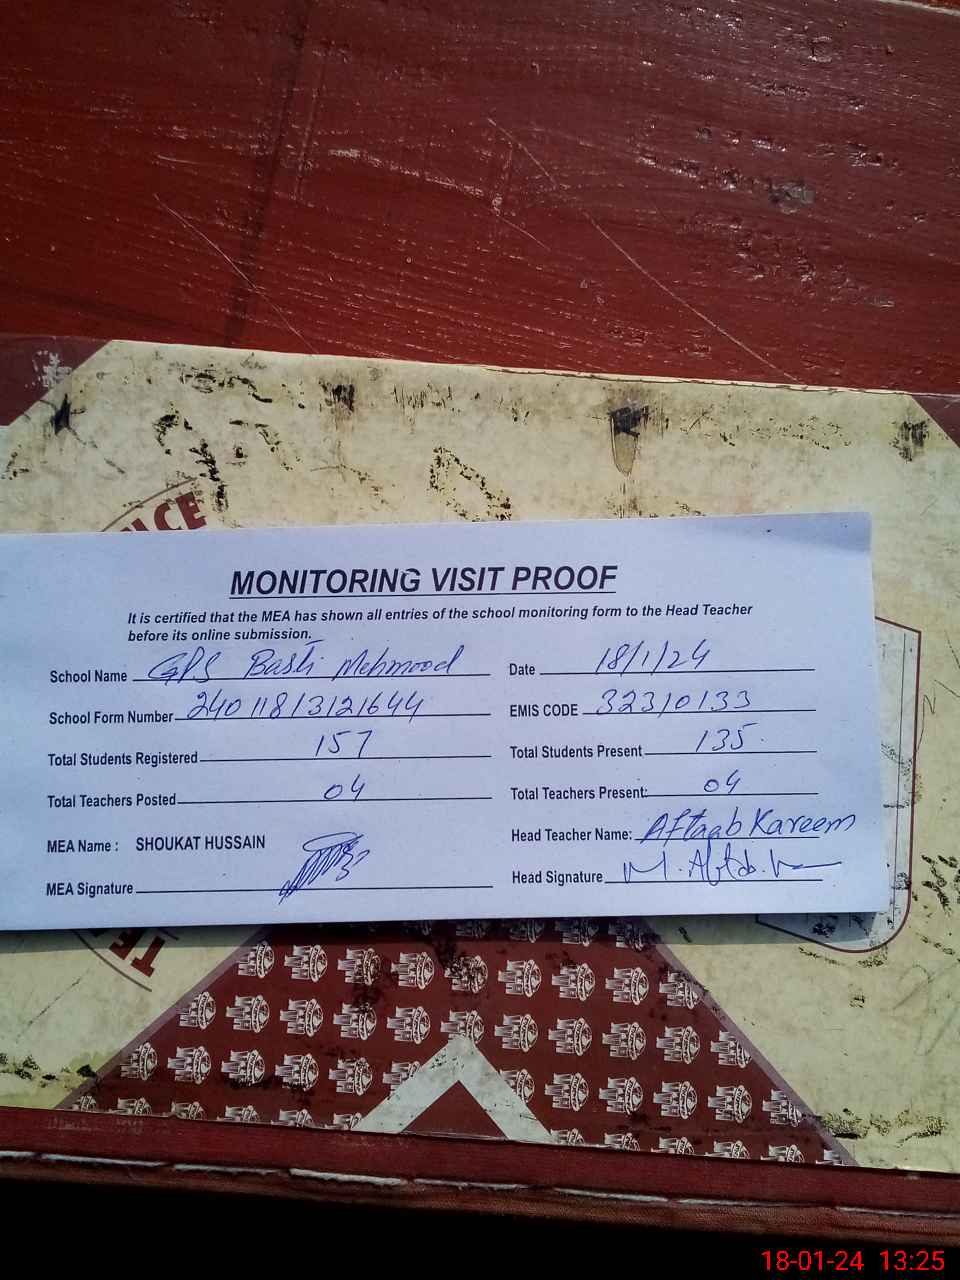 ICE
MONITORING VISIT PROOF
It is certified that the MEA has shown all entries of the school monitoring form to the Head Teacher
before its online submission.
School Name GPS Basti Mehmood Date 18/1/24
School Form Number 240118/3121644 EMIS CODE 32310133
Total Students Registered 157 Total Students Present 135
Total Teachers Posted 04 Total Teachers Present: 04
MEA Name : SHOUKAT HUSSAIN Head Teacher Name: Aftaab Kareem
MEA Signature Head Signature M. Aftab
TE
18-01-24 13:25